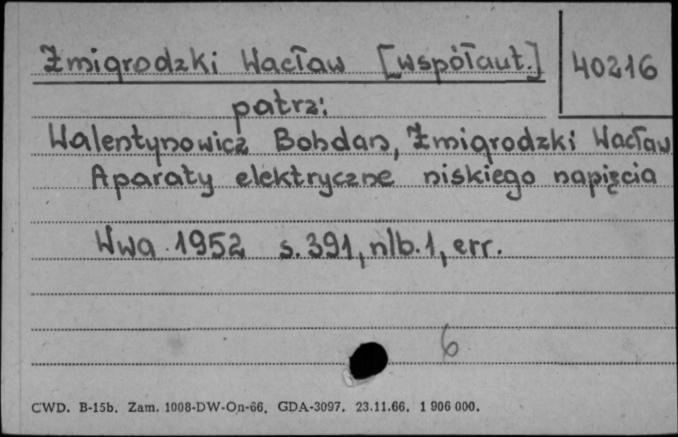 Żmigrodzki Wacław [współaut.]
40216
patrz:
Walentynowicz Bohdan, Żmigrodzki Wacław
Aparaty elektryczne niskiego napięcia
Wwa 1952 s. 391, nlb. 1, err.
6
CWD. B-15b. Zam. 1008-DW-On-66. GDA-3097. 23.11.66. 1 906 000.